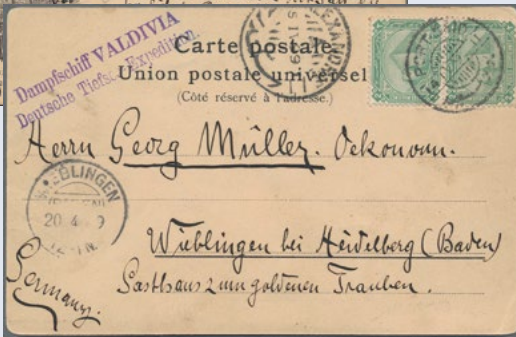 Dampfschiff VALDIVIA
Deutsche Tiefsee-Expedition.
Carte postale.
Union postale universel
(Côté réservé à l'adresse.)
PORT-SAID
Herrn Georg Müller. Oekonom.
WIEBLINGEN
20.4 9
Wieblingen bei Heidelberg (Baden)
Gasthaus zum goldenen Trauben.
Germany.